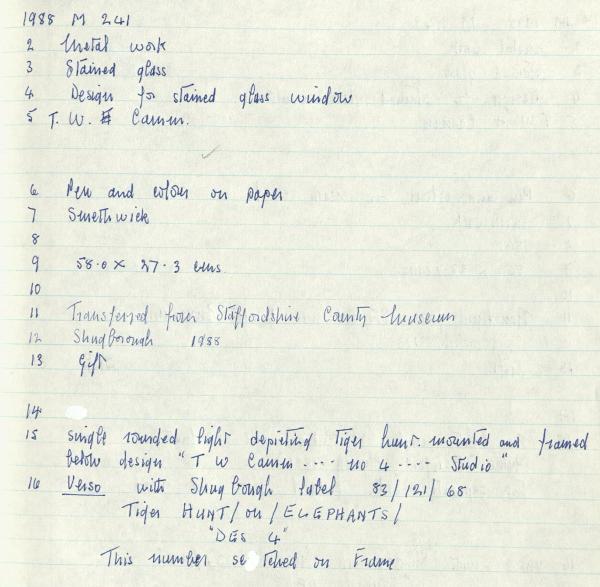 1988 M 241
2 Metal work
3 Stained glass
4 Design for stained glass window
5 T. W. Camm.
6 Pen and colour on paper
7 Smethwick
8
9 58.0 x 27.3 cms
10
11 Transferred from Staffordshire County Museum
12 Shugborough 1988
13 Gift
14
15 single rounded light depicting Tiger hunt. mounted and framed
below design "T W Camm .... no 4 .... Studio"
16 Verso with Shugborough label 83/121/68
Tiger HUNT/on/ELEPHANTS/
"DES 4"
This number on Frame